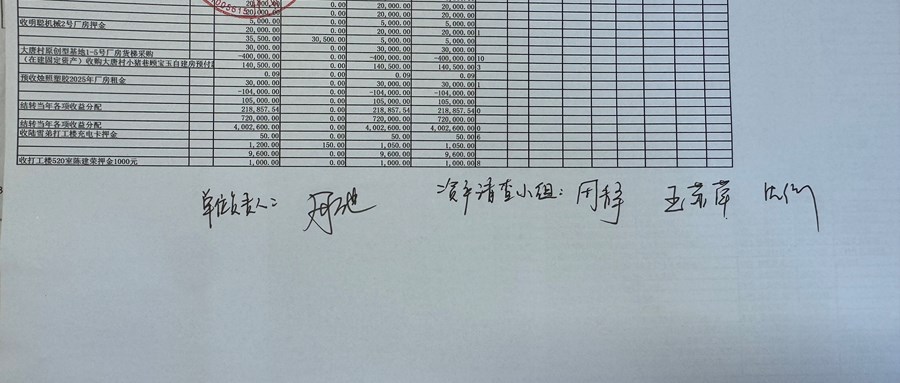 20,000.00 0.00 20,000.00 20,000.00
20,000.00 0.00 20,000.00 20,000.00
收明聪机械2号厂房押金 5,000.00 0.00 5,000.00 5,000.00
20,000.00 0.00 20,000.00 20,000.00 1
35,500.00 30,500.00 5,000.00 5,000.00
大唐村原创型基地1-5号厂房货梯采购 30,000.00 0.00 30,000.00 30,000.00
(在建固定资产)收购大唐村小猪巷顾宝玉自建房预付 -400,000.00 0.00 -400,000.00 -400,000.00 10
140,500.00 0.00 140,500.00 140,500.00 3
0.09 0.00 0.09 0.09
预收烛照塑胶2025年厂房租金 30,000.00 0.00 30,000.00 30,000.00 1
-104,000.00 0.00 -104,000.00 -104,000.00
105,000.00 0.00 105,000.00 105,000.00
结转当年各项收益分配 218,857.54 0.00 218,857.54 218,857.54 0
720,000.00 0.00 720,000.00 720,000.00
结转当年各项收益分配 4,002,600.00 0.00 4,002,600.00 4,002,600.00 0
收陆雪弟打工楼充电卡押金 50.00 0.00 50.00 50.00 6
1,200.00 150.00 1,050.00 1,050.00
9,600.00 0.00 9,600.00 9,600.00
收打工楼520室陈建荣押金1000元 1,000.00 0.00 1,000.00 1,000.00 8
单位负责人: 资产清查小组: 周静 王苏萍